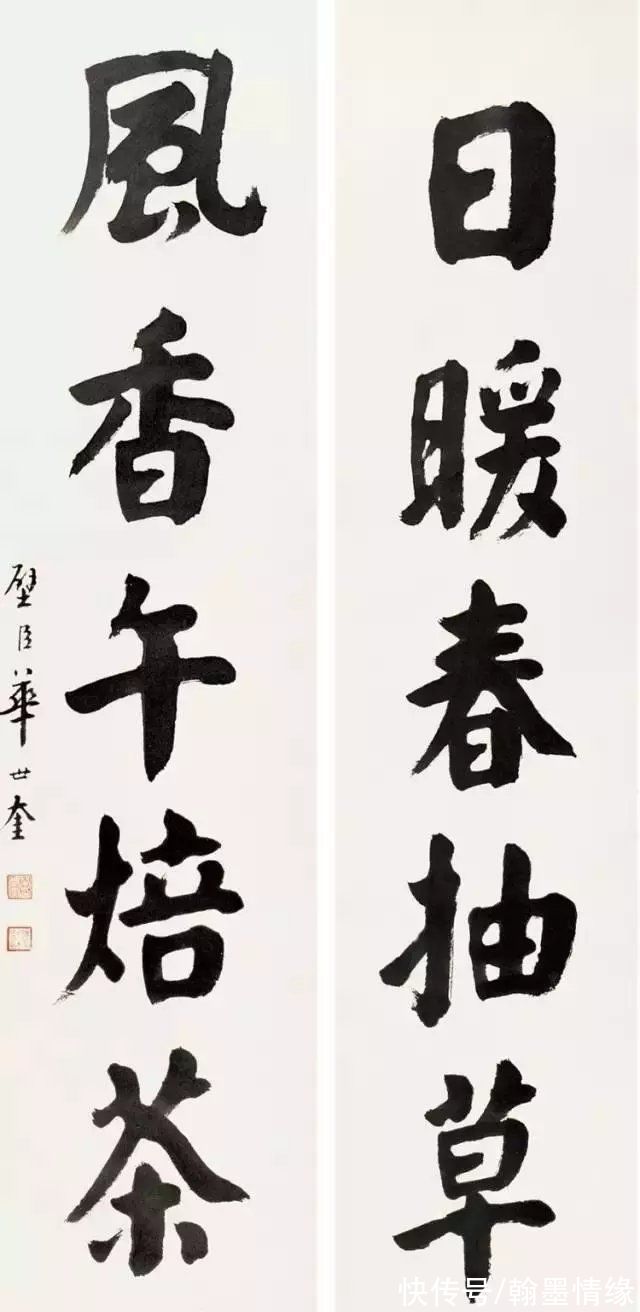 日暖春抽草
風香午焙茶
璧臣華世奎
快传号/翰墨情缘